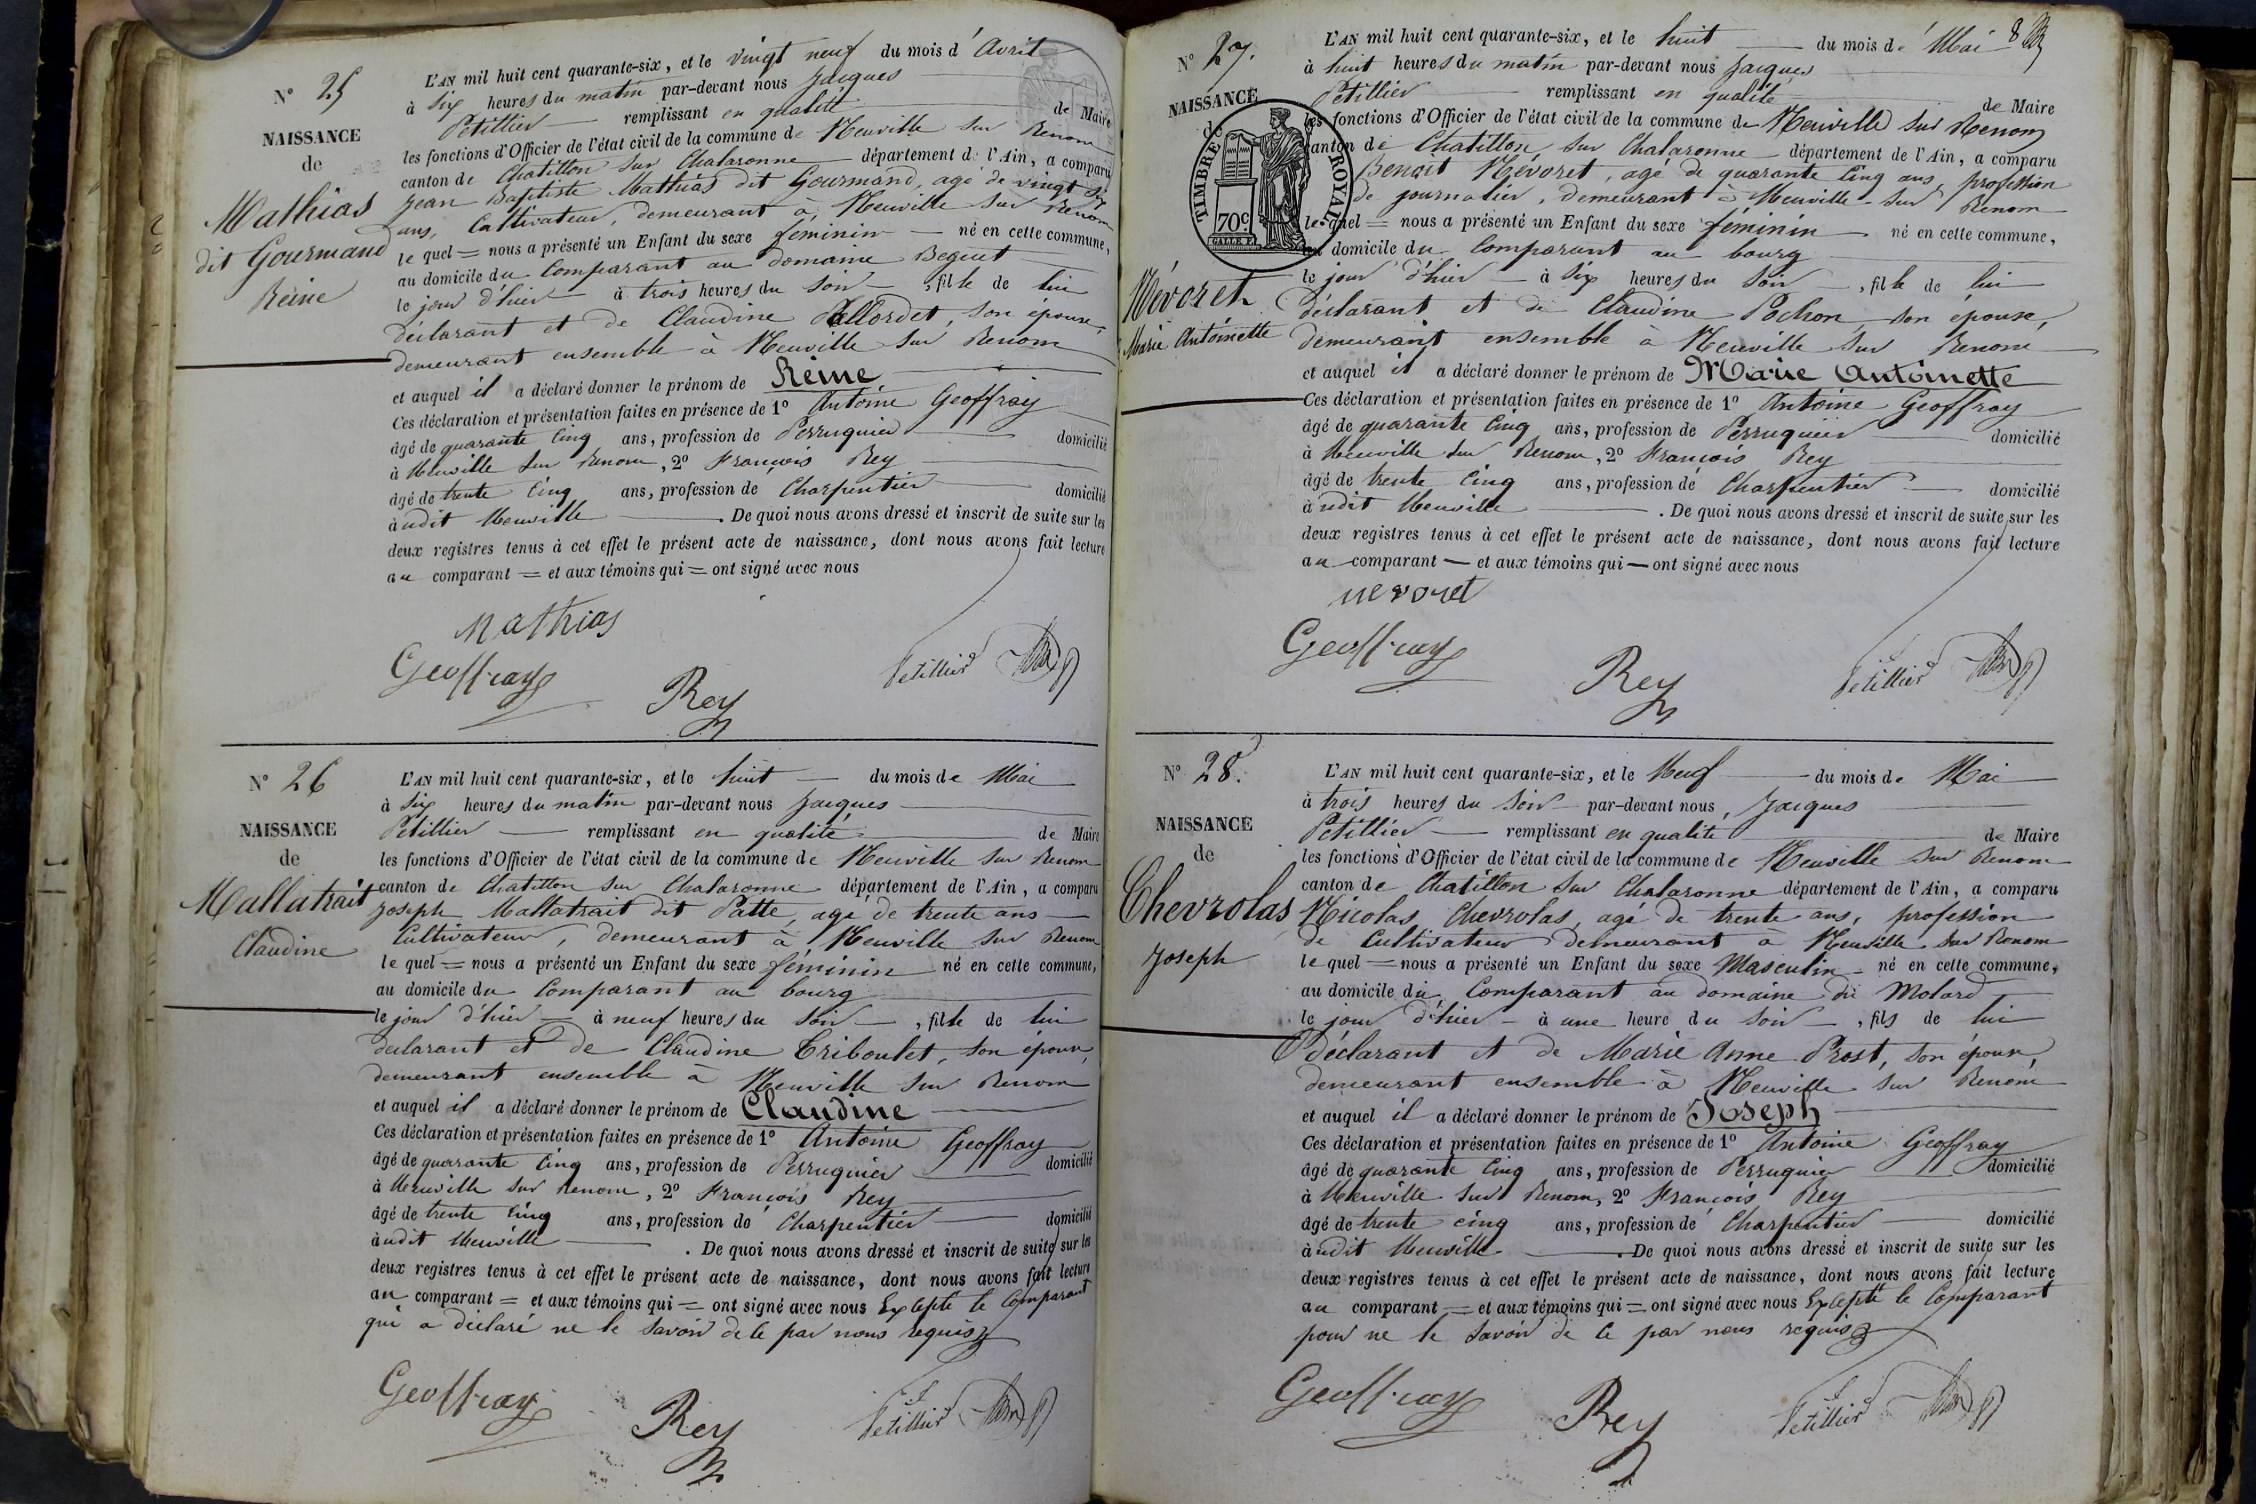 N° 25
NAISSANCE
de
Mathias
dit Gourmand
Reine
L'AN mil huit cent quarante-six, et le vingt neuf du mois d'Avril
à six heures du matin par-devant nous Jacques
Petillier remplissant en qualité de Maire
les fonctions d'Officier de l'état civil de la commune de Neuville sur Renom
canton de Chatillon sur Chalaronne département de l'Ain, a comparu
Jean Baptiste Mathias dit Gourmand, agé de vingt six
ans, Cultivateur, demeurant à Neuville sur Renom
le quel = nous a présenté un Enfant du sexe féminin né en cette commune,
au domicile du Comparant au domaine Beguet
le jour d'hier à trois heures du soir, fille de lui
déclarant et de Claudine, son épouse,
demeurant ensemble à Neuville sur Renom
et auquel il a déclaré donner le prénom de Reine
Ces déclaration et présentation faites en présence de 1° Antoine Geoffray
âgé de quarante cinq ans, profession de Perruquier domicilié
à Neuville sur Renom, 2° François Rey
âgé de trente cinq ans, profession de Charpentier domicilié
à udit Neuville. De quoi nous avons dressé et inscrit de suite sur les
deux registres tenus à cet effet le présent acte de naissance, dont nous avons fait lecture
au comparant = et aux témoins qui = ont signé avec nous
Mathias
Geoffray
Rey
Petillier
N° 26
NAISSANCE
de
Mallatrait
Claudine
L'AN mil huit cent quarante-six, et le huit du mois de Mai
à six heures du matin par-devant nous Jacques
Petillier remplissant en qualité de Maire
les fonctions d'Officier de l'état civil de la commune de Neuville sur Renom
canton de Chatillon sur Chalaronne département de l'Ain, a comparu
Joseph Mallatrait dit Patte, agé de trente ans
Cultivateur, demeurant à Neuville sur Renom
le quel = nous a présenté un Enfant du sexe féminin né en cette commune,
au domicile du Comparant au bourg
le jour d'hier à neuf heures du soir, fille de lui
déclarant et de Claudine Triboulet, son épouse,
demeurant ensemble à Neuville sur Renom
et auquel il a déclaré donner le prénom de Claudine
Ces déclaration et présentation faites en présence de 1° Antoine Geoffray
âgé de quarante cinq ans, profession de Perruquier domicilié
à Neuville sur Renom, 2° François Rey
âgé de trente cinq ans, profession de Charpentier domicilié
à udit Neuville. De quoi nous avons dressé et inscrit de suite sur les
deux registres tenus à cet effet le présent acte de naissance, dont nous avons fait lecture
au comparant = et aux témoins qui = ont signé avec nous Excepté le Comparant
qui a déclaré ne le savoir de ce par nous requis
Geoffray
Rey
Petillier
8
N° 27.
NAISSANCE
de
TIMBRE ROYAL
70c
Névoret
Marie Antoinette
L'AN mil huit cent quarante-six, et le huit du mois de Mai
à huit heures du matin par-devant nous Jacques
Petillier remplissant en qualité de Maire
les fonctions d'Officier de l'état civil de la commune de Neuville sur Renom
canton de Chatillon sur Chalaronne département de l'Ain, a comparu
Benoit Névoret, agé de quarante cinq ans, profession
de journalier, demeurant à Neuville sur Renom
le quel = nous a présenté un Enfant du sexe féminin né en cette commune,
au domicile du Comparant au bourg
le jour d'hier à six heures du soir, fille de lui
déclarant et de Claudine Pochon, son épouse,
demeurant ensemble à Neuville sur Renom
et auquel il a déclaré donner le prénom de Marie Antoinette
Ces déclaration et présentation faites en présence de 1° Antoine Geoffray
âgé de quarante cinq ans, profession de Perruquier domicilié
à Neuville sur Renom, 2° François Rey
âgé de trente cinq ans, profession de Charpentier domicilié
à udit Neuville. De quoi nous avons dressé et inscrit de suite sur les
deux registres tenus à cet effet le présent acte de naissance, dont nous avons fait lecture
au comparant — et aux témoins qui — ont signé avec nous
nevoret
Geoffray
Rey
Petillier
N° 28.
NAISSANCE
de
Chevrolas
Joseph
L'AN mil huit cent quarante-six, et le Neuf du mois de Mai
à trois heures du soir par-devant nous, Jacques
Petillier remplissant en qualité de Maire
les fonctions d'Officier de l'état civil de la commune de Neuville sur Renom
canton de Chatillon sur Chalaronne département de l'Ain, a comparu
Nicolas Chevrolas, agé de trente ans, profession
de Cultivateur demeurant à Neuville sur Renom
le quel = nous a présenté un Enfant du sexe Masculin né en cette commune,
au domicile du Comparant au domaine du Molard
le jour d'hier à une heure du soir, fils de lui
déclarant et de Marie Anne Prost, son épouse,
demeurant ensemble à Neuville sur Renom
et auquel il a déclaré donner le prénom de Joseph
Ces déclaration et présentation faites en présence de 1° Antoine Geoffray
âgé de quarante cinq ans, profession de Perruquier domicilié
à Neuville sur Renom, 2° François Rey
âgé de trente cinq ans, profession de Charpentier domicilié
à udit Neuville. De quoi nous avons dressé et inscrit de suite sur les
deux registres tenus à cet effet le présent acte de naissance, dont nous avons fait lecture
au comparant = et aux témoins qui = ont signé avec nous Excepté le Comparant
pour ne le savoir de ce par nous requis
Geoffray
Rey
Petillier